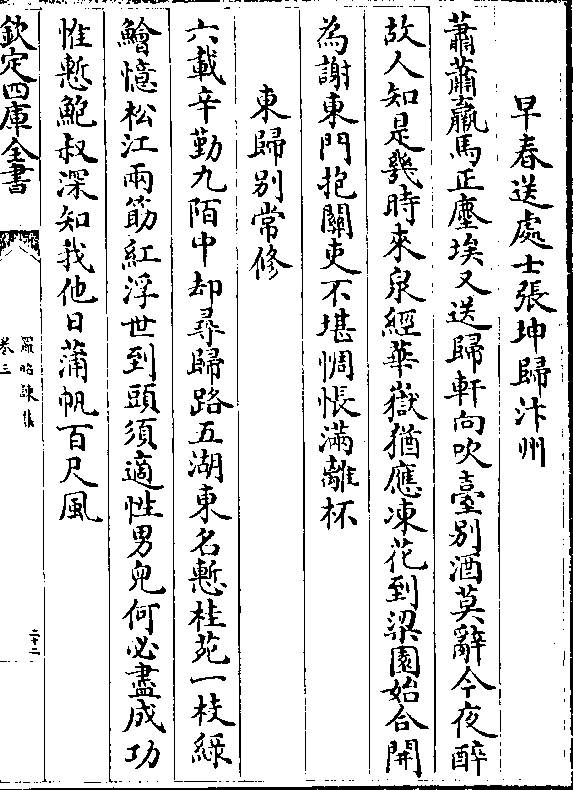 早春送處士張坤歸汴州
蕭蕭羸馬正塵埃又送歸軒向吹臺別酒莫辭今夜醉
故人知是幾時來泉經華嶽猶應凍花到梁園始合開
為謝東門抱關吏不堪惆悵滿離杯
東歸別常修
六載辛勤九陌中却尋歸路五湖東名慙桂苑一枝綠
鱠憶松江兩筯紅浮世到頭須適性男兒何必盡成功
惟慙鮑叔深知我他日蒲帆百尺風
欽定四庫全書
羅昭諫集
卷三
二十二